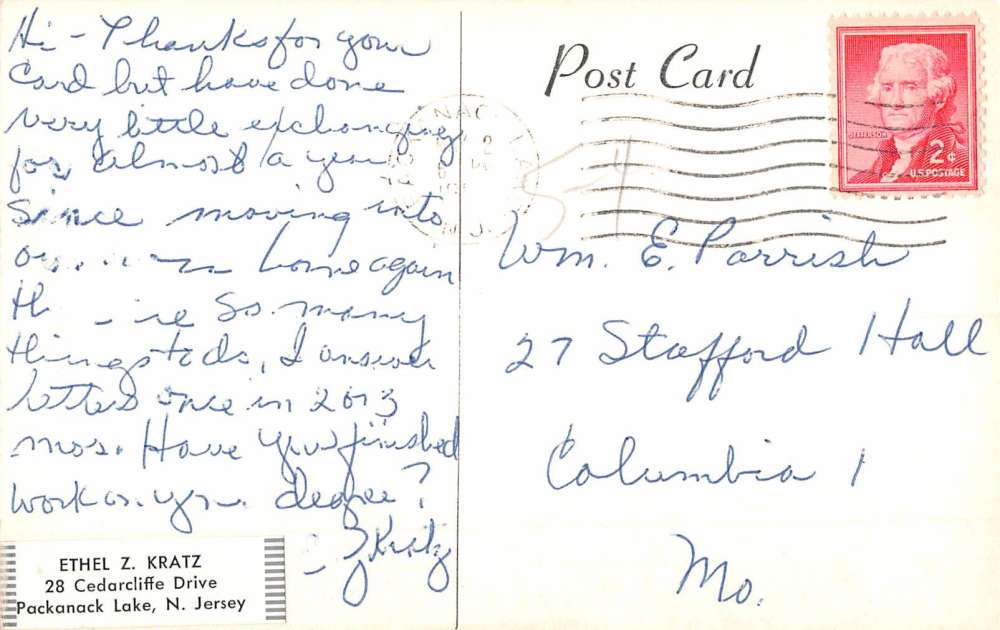 Hi - Thanks for your
Card but have done
very little exchanging
for almost a year
Since moving into
home again
so many
things to do, I answer
letters once in 2 or 3
mos. Have you finished
work on your degree?
- ZKratz
ETHEL Z. KRATZ
28 Cedarcliffe Drive
Packanack Lake, N. Jersey
Post Card
JEFFERSON
2¢
U.S. POSTAGE
Wm. E. Parrish
27 Stafford Hall
Columbia 1
Mo.